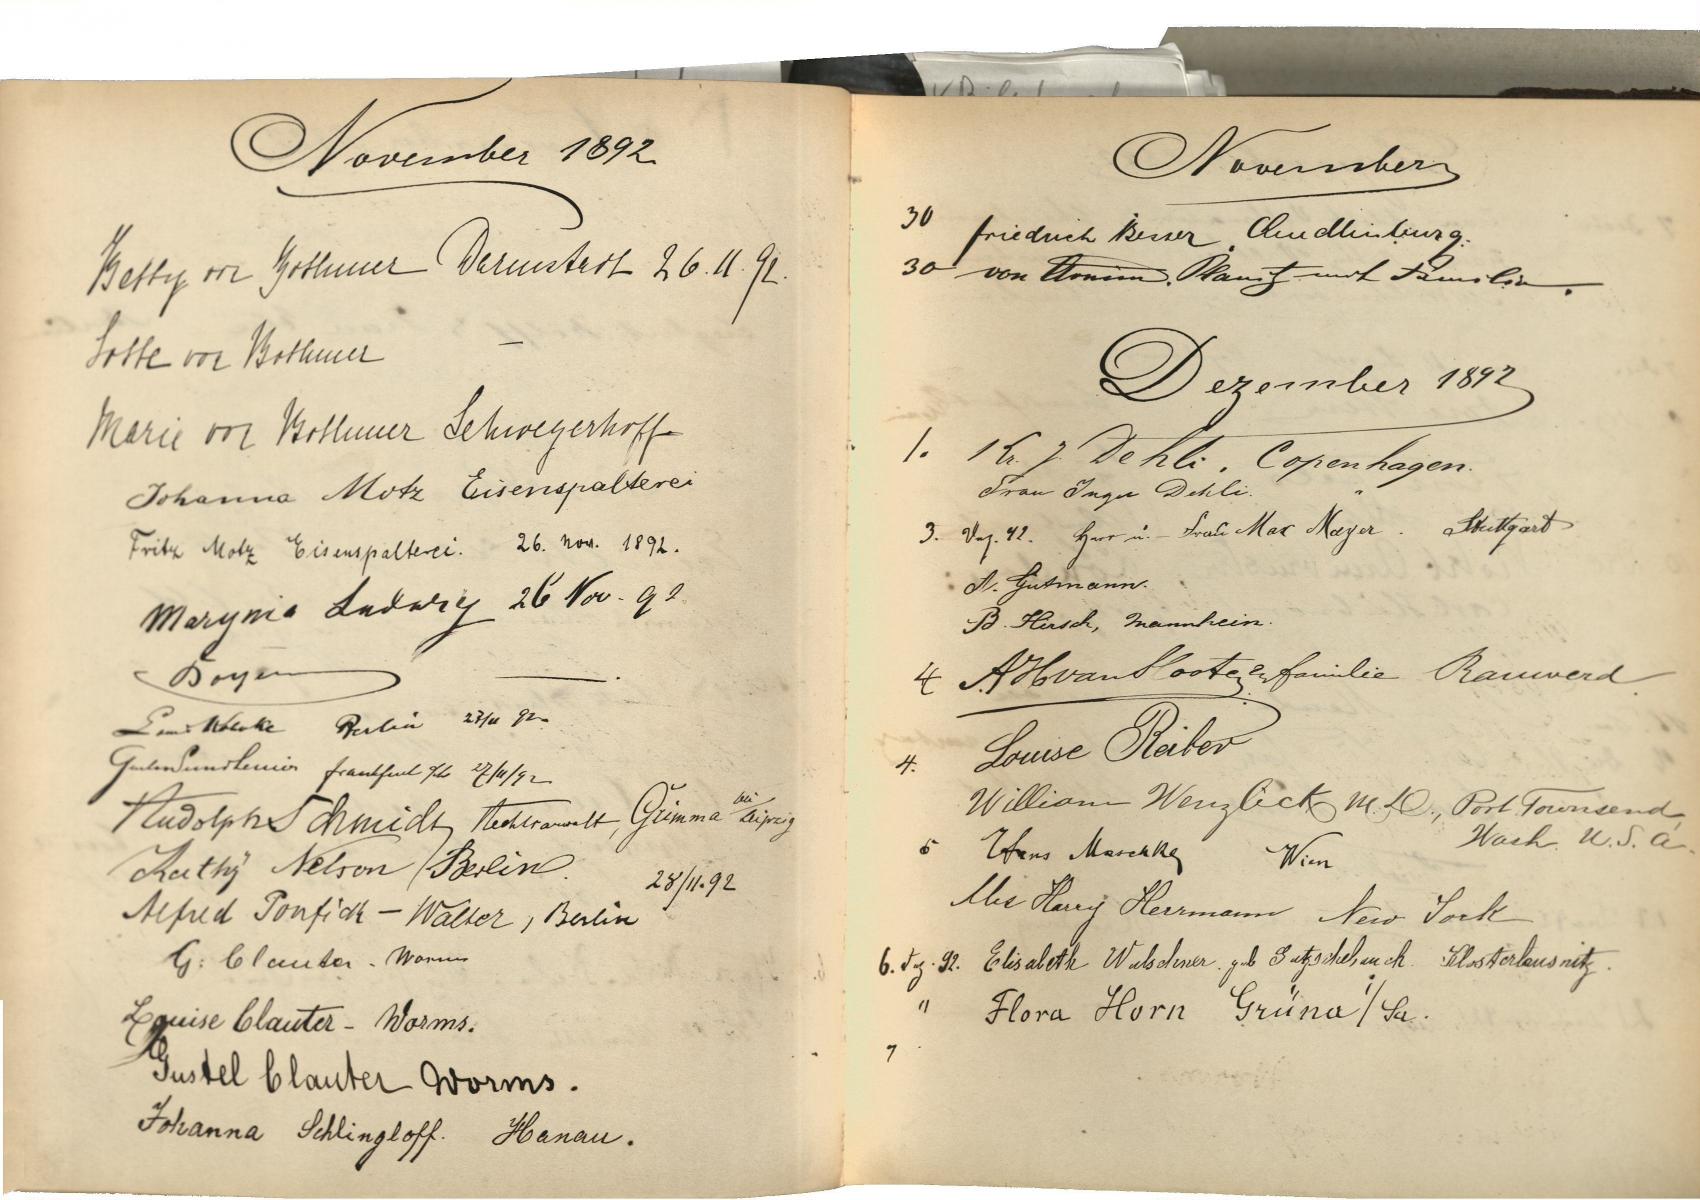 November 1892
Betty von Bothmer Darmstadt 26.11.92.
Lotte von Bothmer —
Marie von Bothmer Schwegerhoff
Johanna Motz Eisenspalterei
Fritz Motz Eisenspalterei. 26. Nov. 1892.
Marynia Ludwig 26 Nov. 92
Boyen —
Berlin 27/11 92.
Frankfurt 27/11/92
Rudolph Schmidt, Rechtsanwalt, Grimma bei Leipzig
Kathy Nelson / Berlin.
28/11.92
Alfred Ponfick – Walter, Berlin
G. Clauter. Worms
Louise Clauter – Worms.
Gustel Clauter Worms.
Johanna Schlingloff. Hanau.
November
30 Friedrich Besser, Quedlinburg.
30 von Arnim. mit Familie.
Dezember 1892
1. Kr. J. Dehli. Copenhagen.
Frau Inger Dehli. "
3. Dez. 92. Herr u. Frau Max Mayer. Stuttgart
A. Gutmann.
B. Hirsch, Mannheim.
4 A H van Slooten en familie
4. Louise Reiber
William Wenzlick M.D., Port Townsend,
Wash. U.S.A.
5 Hans Maschke Wien
Mrs Harry Herrmann New York
6. Dez. 92. Elisabeth geb Klosterlausnitz.
" Flora Horn Grüna i/Sa.
7